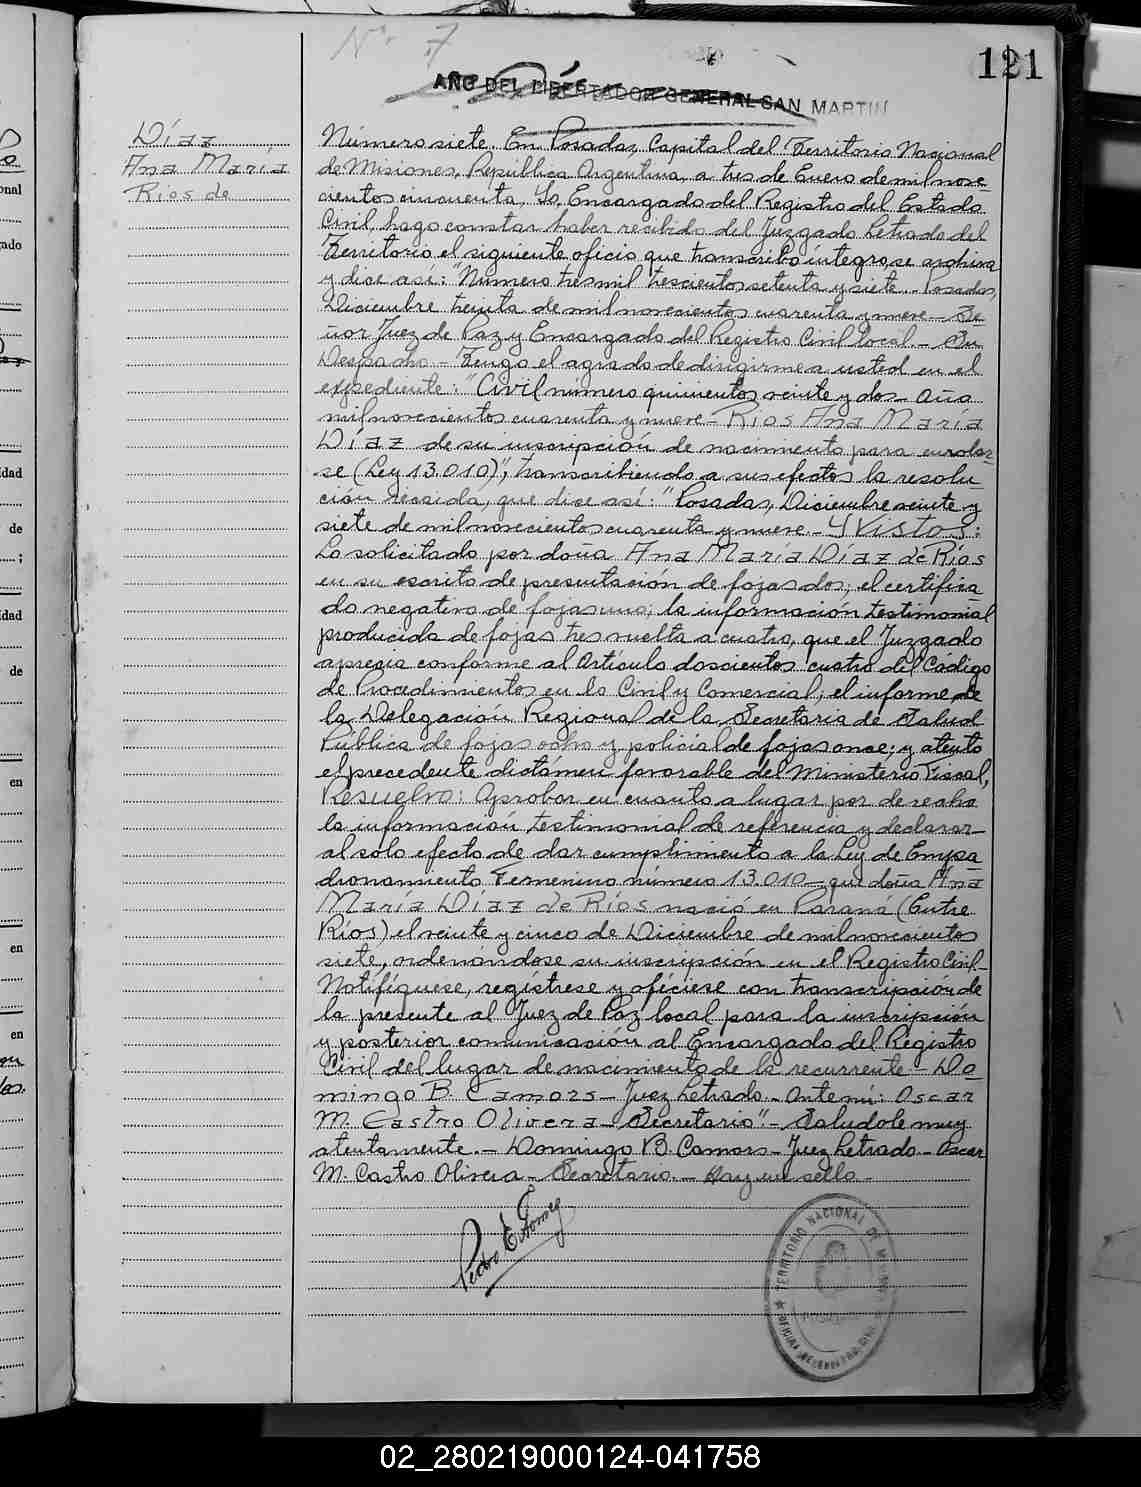 Nº 7
121
AÑO DEL LIBERTADOR GENERAL SAN MARTIN
Díaz
Ana María
Rios de
Número siete. En Posadas, Capital del Territorio Nacional
de Misiones, República Argentina, a tres de Enero de mil nove
cientos cincuenta, Yo, Encargado del Registro del Estado
Civil, hago constar haber recibido del Juzgado Letrado del
Territorio el siguiente oficio que transcribo íntegro, se archiva
y dice así: "Número tres mil trescientos setenta y siete.- Posadas,
Diciembre treinta de mil novecientos cuarenta y nueve.- Se
ñor Juez de Paz y Encargado del Registro Civil local.- Su
Despacho.- Tengo el agrado de dirigirme a usted en el
expediente: "Civil número quinientos veinte y dos- año
mil novecientos cuarenta y nueve- Rios Ana María
Díaz de su inscripción de nacimiento para enrolar-
se (Ley 13.010)", transcribiendo a sus efectos la resolu-
ción recaida, que dice así: "Posadas, Diciembre veinte y
siete de mil novecientos cuarenta y nueve.- Y Vistos:
Lo solicitado por doña Ana María Díaz de Ríos
en su escrito de presentación de fojas dos; el certifica
do negativo de fojas uno; la información testimonial
producida de fojas tres vuelta a cuatro, que el Juzgado
aprecia conforme al Artículo doscientos cuatro del Código
de Procedimientos en lo Civil y Comercial; el informe de
la Delegación Regional de la Secretaria de Salud
Pública de fojas ocho y policial de fojas once; y atento
el precedente dictámen favorable del Ministerio Fiscal,
Resuelvo: Aprobar en cuanto a lugar por derecho
la información testimonial de referencia y declarar-
al solo efecto de dar cumplimiento a la Ley de Empa
dronamiento Femenino número 13.010- que doña Ana
María Díaz de Ríos nació en Paraná (Entre
Ríos) el veinte y cinco de Diciembre de mil novecientos
siete, ordenándose su inscripción en el Registro Civil-
Notifíquese, regístrese y ofíciese con transcripción de
la presente al Juez de Paz local para la inscripción
y posterior comunicación al Encargado del Registro
Civil del lugar de nacimiento de la recurrente.- Do
mingo B. Camors- Juez Letrado.- Ante mí: Oscar
M. Castro Olivera- Secretario".- Saludole muy
atentamente.- Domingo B. Camors- Juez Letrado.- Oscar
M. Castro Olivera- Secretario.- Hay un sello.-
TERRITORIO NACIONAL DE
02_280219000124-041758